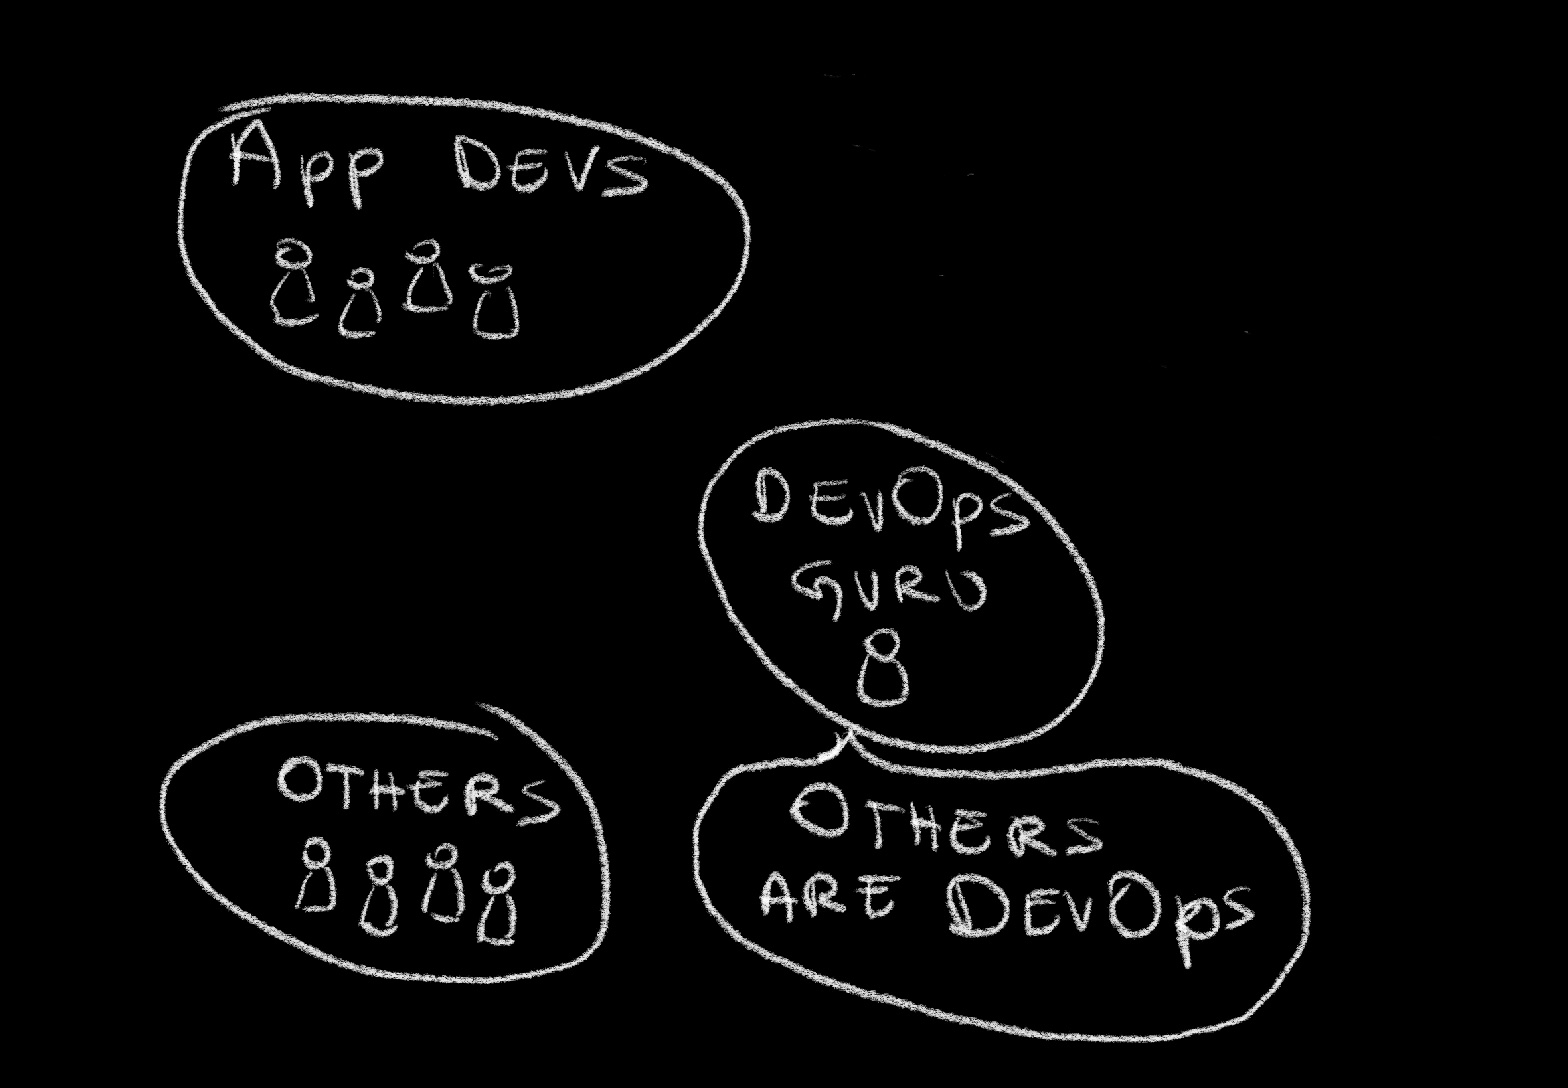 App DEVS
DEVOps
GURU
OTHERS
OTHERS
ARE DEVOps